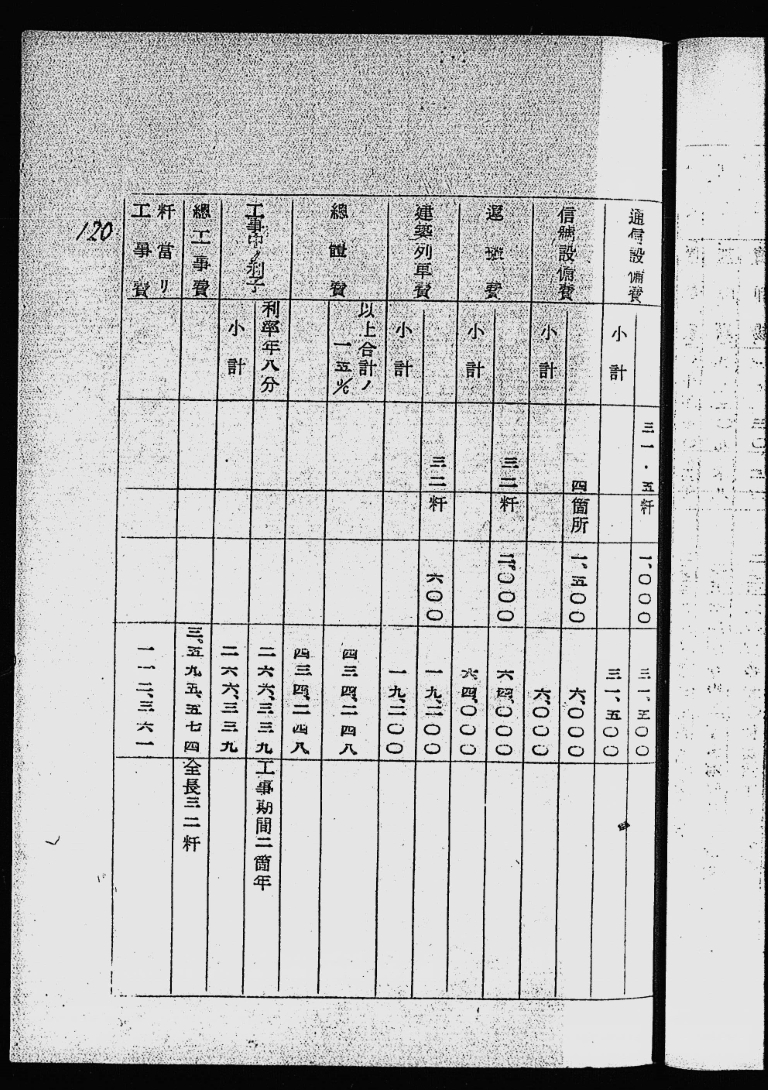 通信設備費
三一・五粁
一、〇〇〇
三一、五〇〇
小計
三一、五〇〇
信號設備費
四箇所
一、五〇〇
六、〇〇〇
小計
六、〇〇〇
運搬費
三二粁
二、〇〇〇
六四、〇〇〇
小計
六四、〇〇〇
建築列車費
三二粁
六〇〇
一九、二〇〇
小計
一九、二〇〇
總體費
以上合計ノ
一五%
四三四、二四八
四三四、二四八
工事中ノ利子
利率年八分
二六六、三三九
工事期間二箇年
小計
二六六、三三九
總工事費
三、五九五、五七四
全長三二粁
粁當リ
工事費
一一二、三六一
120